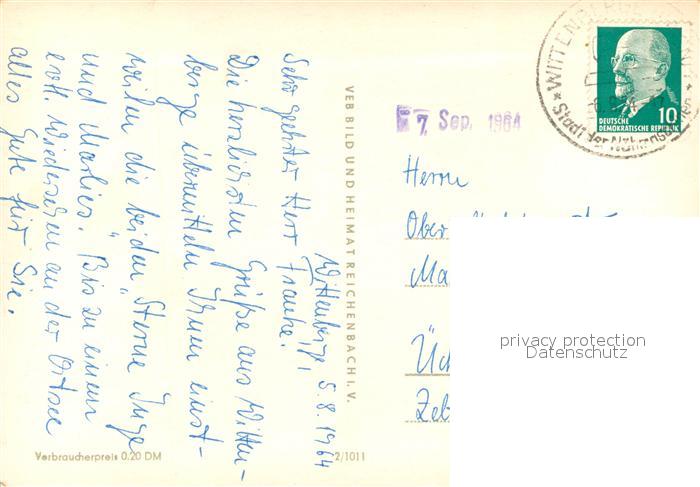 Wittenberge, 5.8.1964
Sehr geehrter Herr Franke!
Die herzlichsten Grüße aus Witten-
berge übermitteln Ihnen einst-
weilen die beiden "Sterne" Inge
und Marlies. Bis zu einem
evtl. Wiedersehen an der Ostsee
alles Gute für Sie.
VEB BILD UND HEIMAT REICHENBACH I. V.
Verbraucherpreis 0,20 DM
2/1011
7. Sep. 1964
WITTENBERGE
Stadt der Nähmasc
DEUTSCHE
DEMOKRATISCHE REPUBLIK
10
Herrn
Ober
Ma
Ück
Zeb
privacy protection
Datenschutz